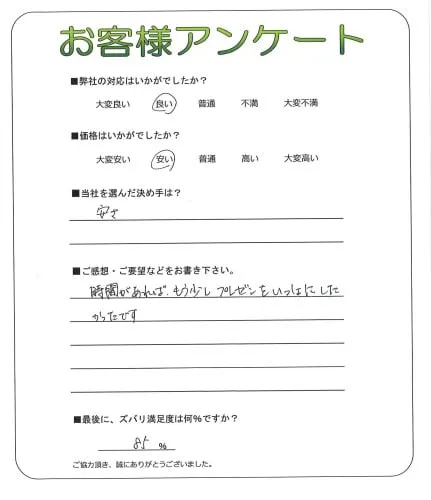 お客様アンケート
■弊社の対応はいかがでしたか？
大変良い 良い 普通 不満 大変不満
■価格はいかがでしたか？
大変安い 安い 普通 高い 大変高い
■当社を選んだ決め手は？
安さ
■ご感想・ご要望などをお書き下さい。
時間があれば、もう少しプレゼンをいっしょにした
かったです
■最後に、ズバリ満足度は何%ですか？
85 %
ご協力頂き、誠にありがとうございました。